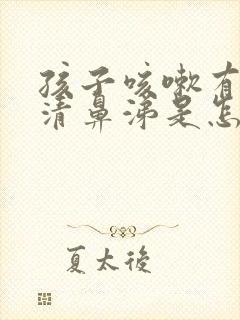 孩子咳嗽有
清鼻涕是怎
夏太後